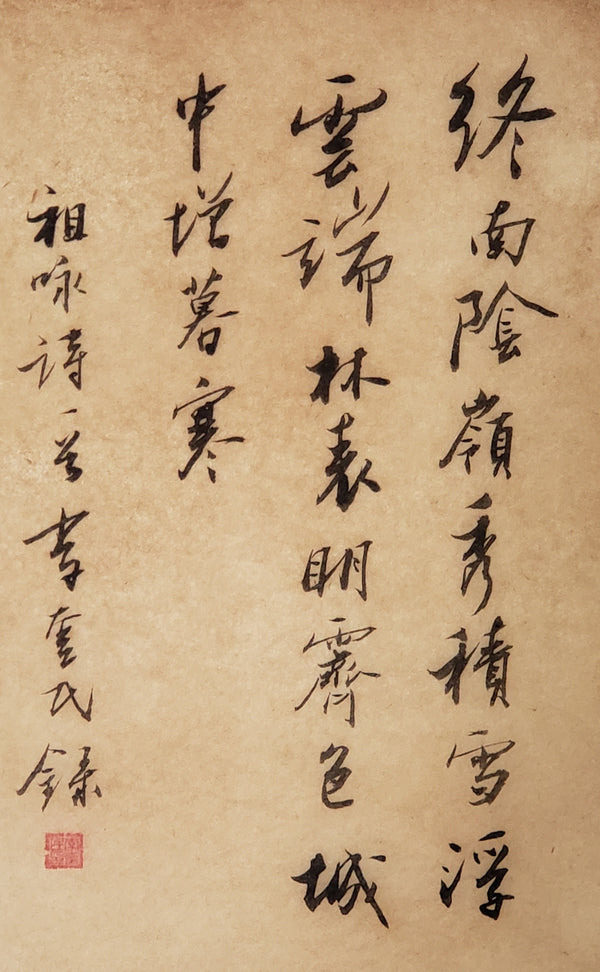 終南陰嶺秀積雪浮
雲端林表明霽色城
中增暮寒
祖咏詩一首李奎氏錄